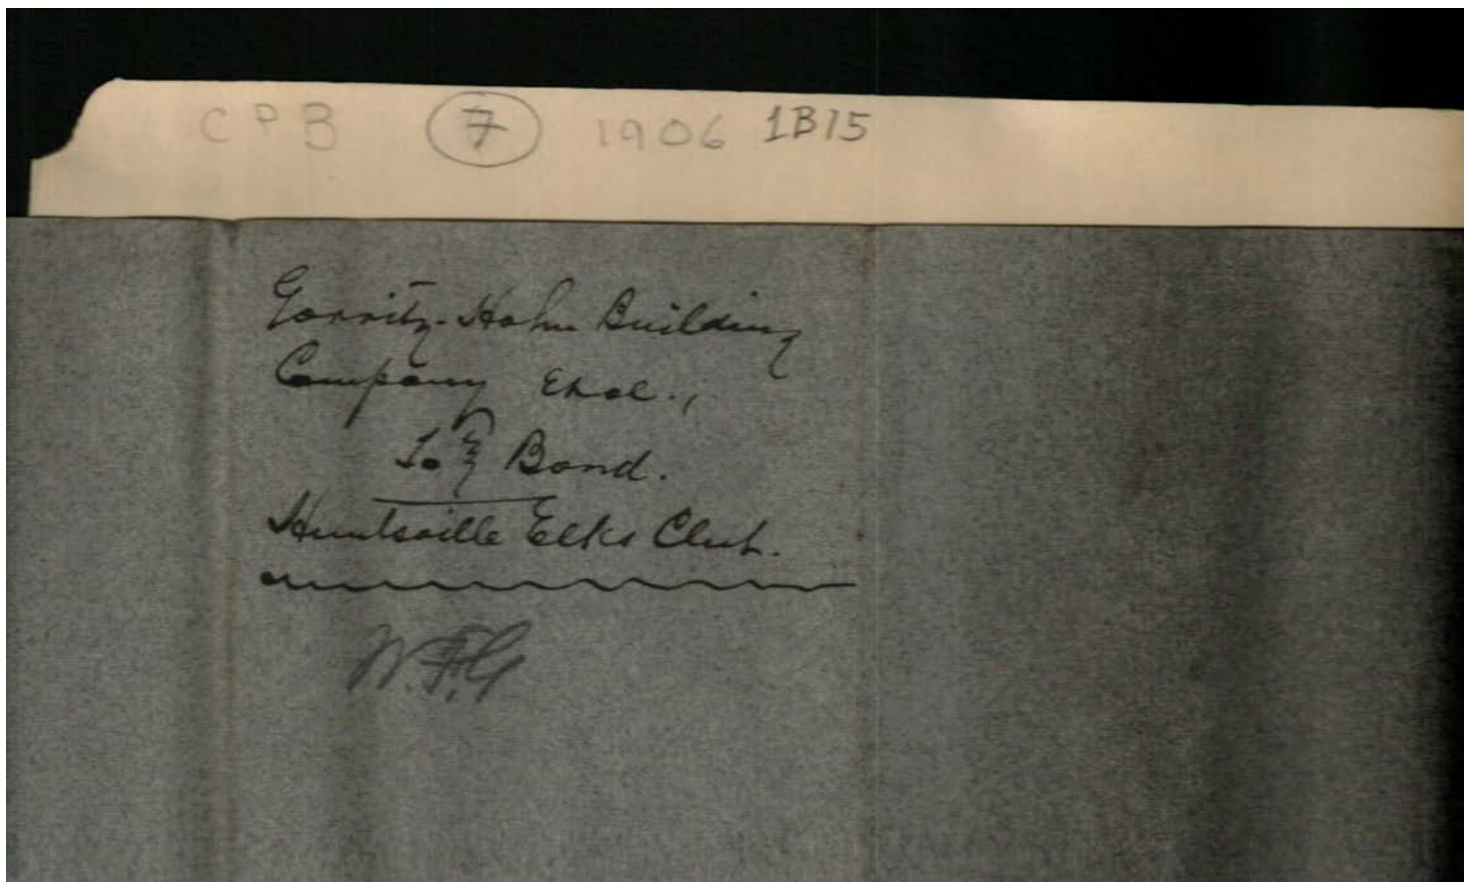 CPB 7 1906 1B15
Gorritz-Hahn Building
Company
To } Bond.
Huntsville Elks Club.
W.F.G